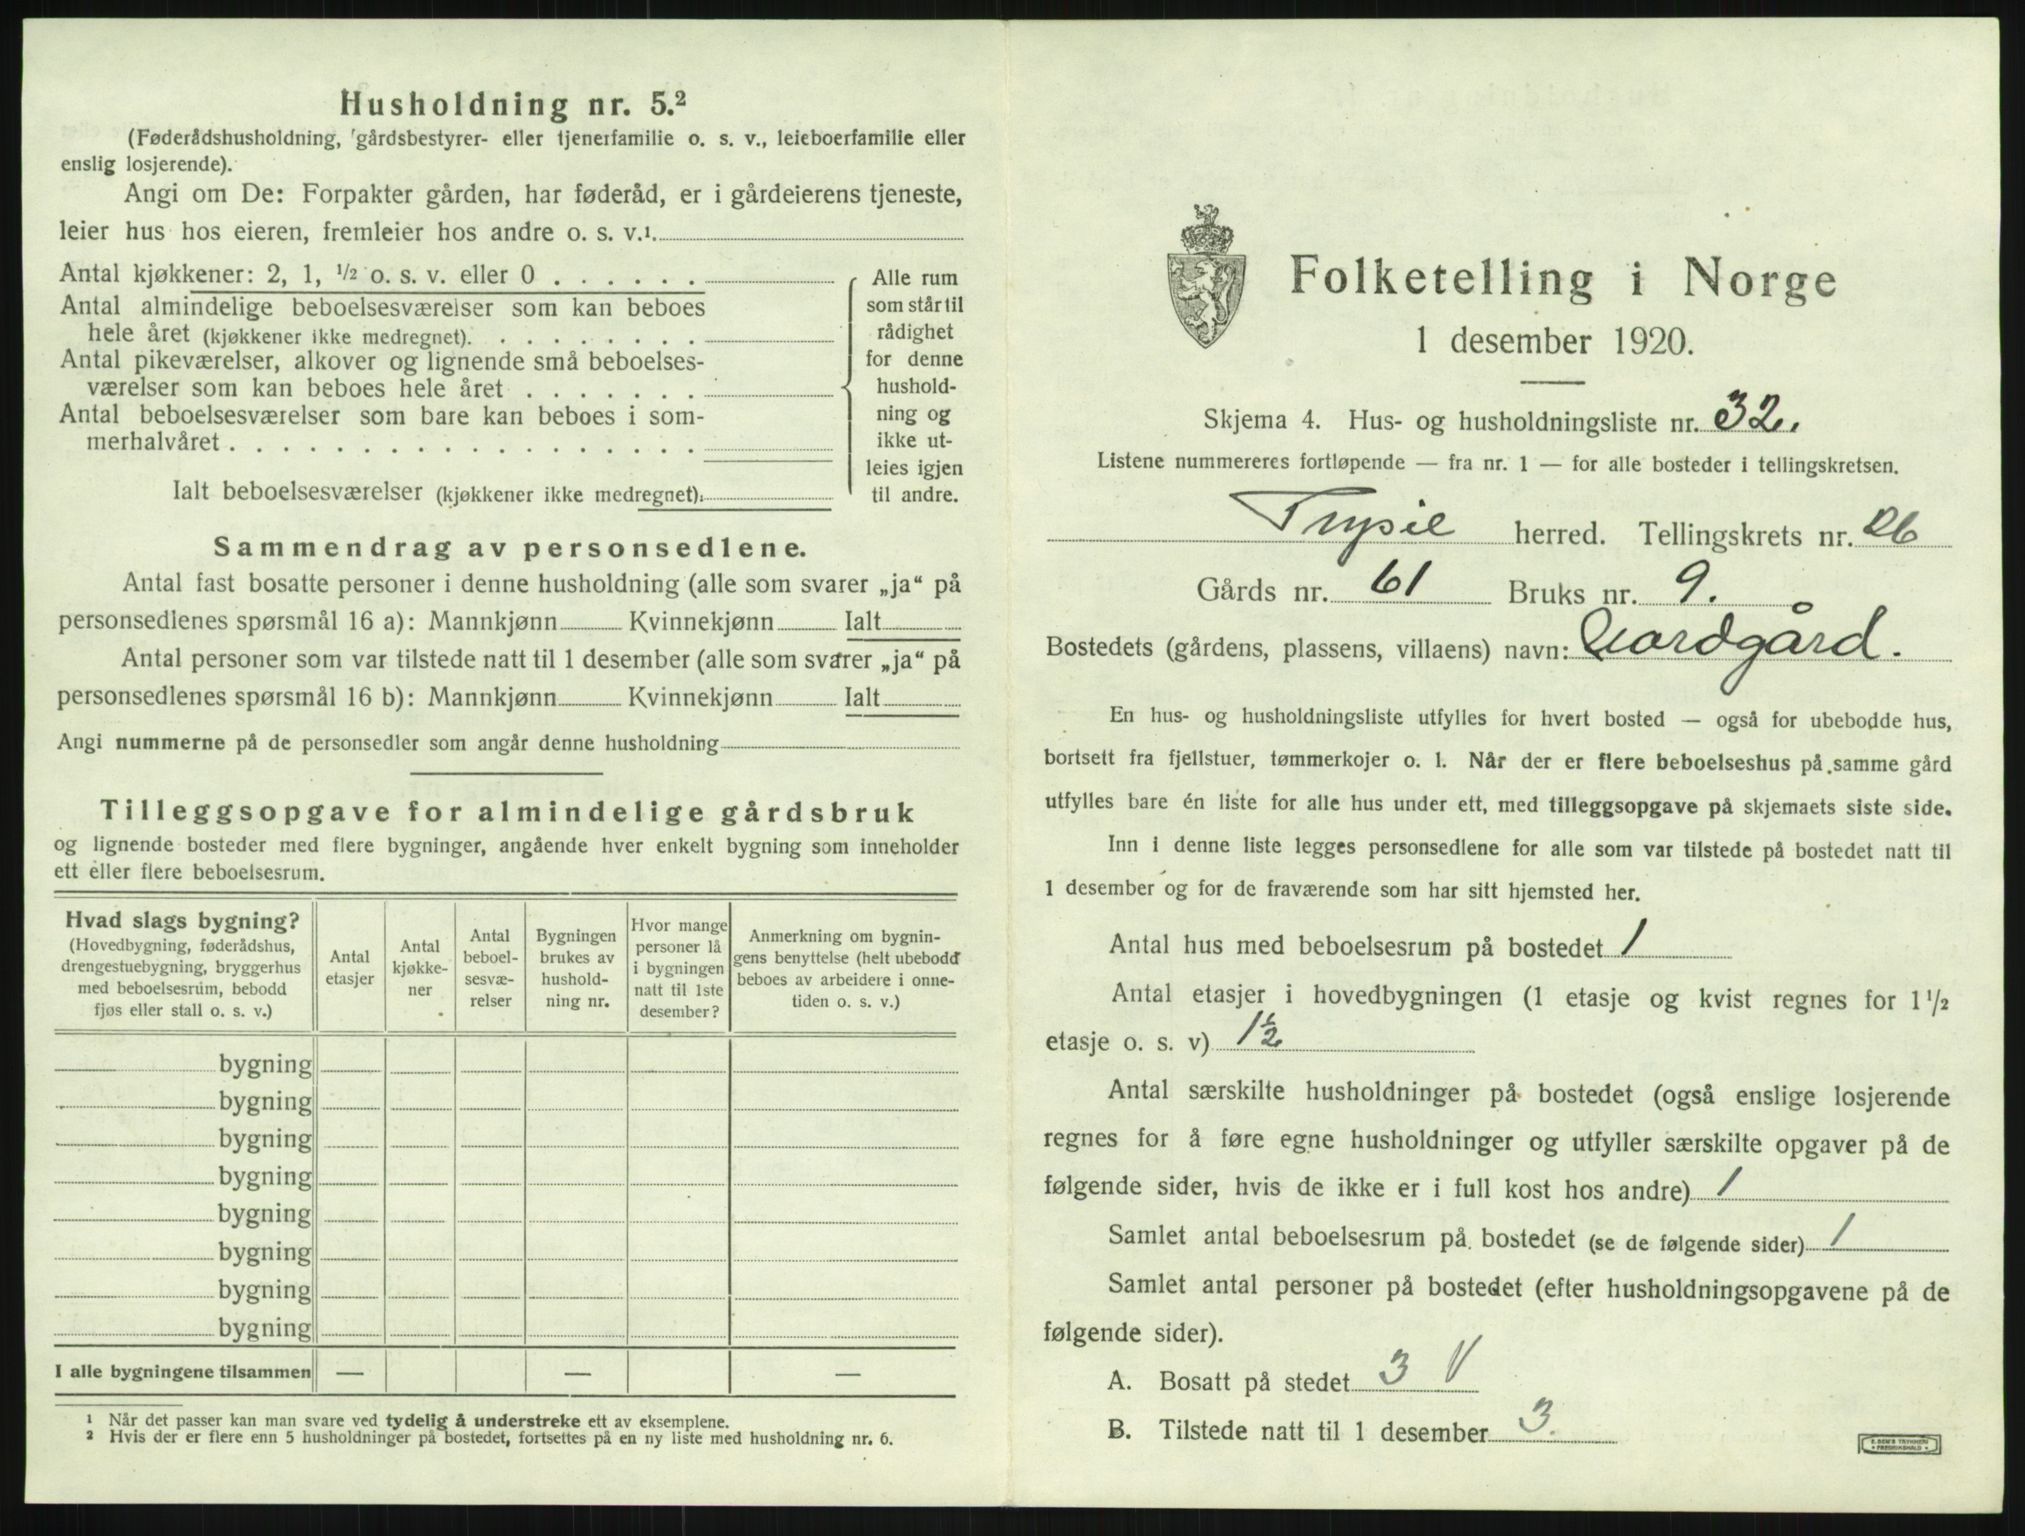 Husholdning nr. 5.²
(Føderådshusholdning, gårdsbestyrer- eller tjenerfamilie o. s. v., leieboerfamilie eller
enslig losjerende).
Angi om De: Forpakter gården, har føderåd, er i gårdeierens tjeneste,
leier hus hos eieren, fremleier hos andre o. s. v.¹
Antal kjøkkener: 2, 1, ½ o. s. v. eller 0 . . . . . .
Antal almindelige beboelsesværelser som kan beboes
hele året (kjøkkener ikke medregnet). . . . . . . . .
Antal pikeværelser, alkover og lignende små beboelses-
værelser som kan beboes hele året . . . . . . .
Antal beboelsesværelser som bare kan beboes i som-
merhalvåret . . . . . . . . . . . . . . . . . .
Ialt beboelsesværelser (kjøkkener ikke medregnet):
Alle rum
som står til
rådighet
for denne
hushold-
ning og
ikke ut-
leies igjen
til andre.
Sammendrag av personsedlene.
Antal fast bosatte personer i denne husholdning (alle som svarer „ja“ på
personsedlenes spørsmål 16 a): Mannkjønn Kvinnekjønn Ialt
Antal personer som var tilstede natt til 1 desember (alle som svarer „ja“ på
personsedlenes spørsmål 16 b): Mannkjønn Kvinnekjønn Ialt
Angi nummerne på de personsedler som angår denne husholdning
Tilleggsopgave for almindelige gårdsbruk
og lignende bosteder med flere bygninger, angående hver enkelt bygning som inneholder
ett eller flere beboelsesrum.
Hvad slags bygning?
(Hovedbygning, føderådshus,
drengestuebygning, bryggerhus
med beboelsesrum, bebodd
fjøs eller stall o. s. v.)
Antal
etasjer
Antal
kjøkke-
ner
Antal
beboel-
sesvæ-
relser
Bygningen
brukes av
hushold-
ning nr.
Hvor mange
personer lå
i bygningen
natt til 1ste
desember?
Anmerkning om bygnin-
gens benyttelse (helt ubebodd
beboes av arbeidere i onne-
tiden o. s. v.)
bygning
bygning
bygning
bygning
bygning
bygning
bygning
bygning
I alle bygningene tilsammen — — —
¹ Når det passer kan man svare ved tydelig å understreke ett av eksemplene.
² Hvis der er flere enn 5 husholdninger på bostedet, fortsettes på en ny liste med husholdning nr. 6.
Folketelling i Norge
1 desember 1920.
Skjema 4. Hus- og husholdningsliste nr. 32.
Listene nummereres fortløpende — fra nr. 1 — for alle bosteder i tellingskretsen.
Trysil herred. Tellingskrets nr. 26
Gårds nr. 61 Bruks nr. 9.
Bostedets (gårdens, plassens, villaens) navn: Nordgård.
En hus- og husholdningsliste utfylles for hvert bosted — også for ubebodde hus,
bortsett fra fjellstuer, tømmerkojer o. l. Når der er flere beboelseshus på samme gård
utfylles bare én liste for alle hus under ett, med tilleggsopgave på skjemaets siste side.
Inn i denne liste legges personsedlene for alle som var tilstede på bostedet natt til
1 desember og for de fraværende som har sitt hjemsted her.
Antal hus med beboelsesrum på bostedet 1
Antal etasjer i hovedbygningen (1 etasje og kvist regnes for 1 ½
etasje o. s. v) 1½
Antal særskilte husholdninger på bostedet (også enslige losjerende
regnes for å føre egne husholdninger og utfyller særskilte opgaver på de
følgende sider, hvis de ikke er i full kost hos andre) 1
Samlet antal beboelsesrum på bostedet (se de følgende sider) 1
Samlet antal personer på bostedet (efter husholdningsopgavene på de
følgende sider).
A. Bosatt på stedet 3 V
B. Tilstede natt til 1 desember 3.